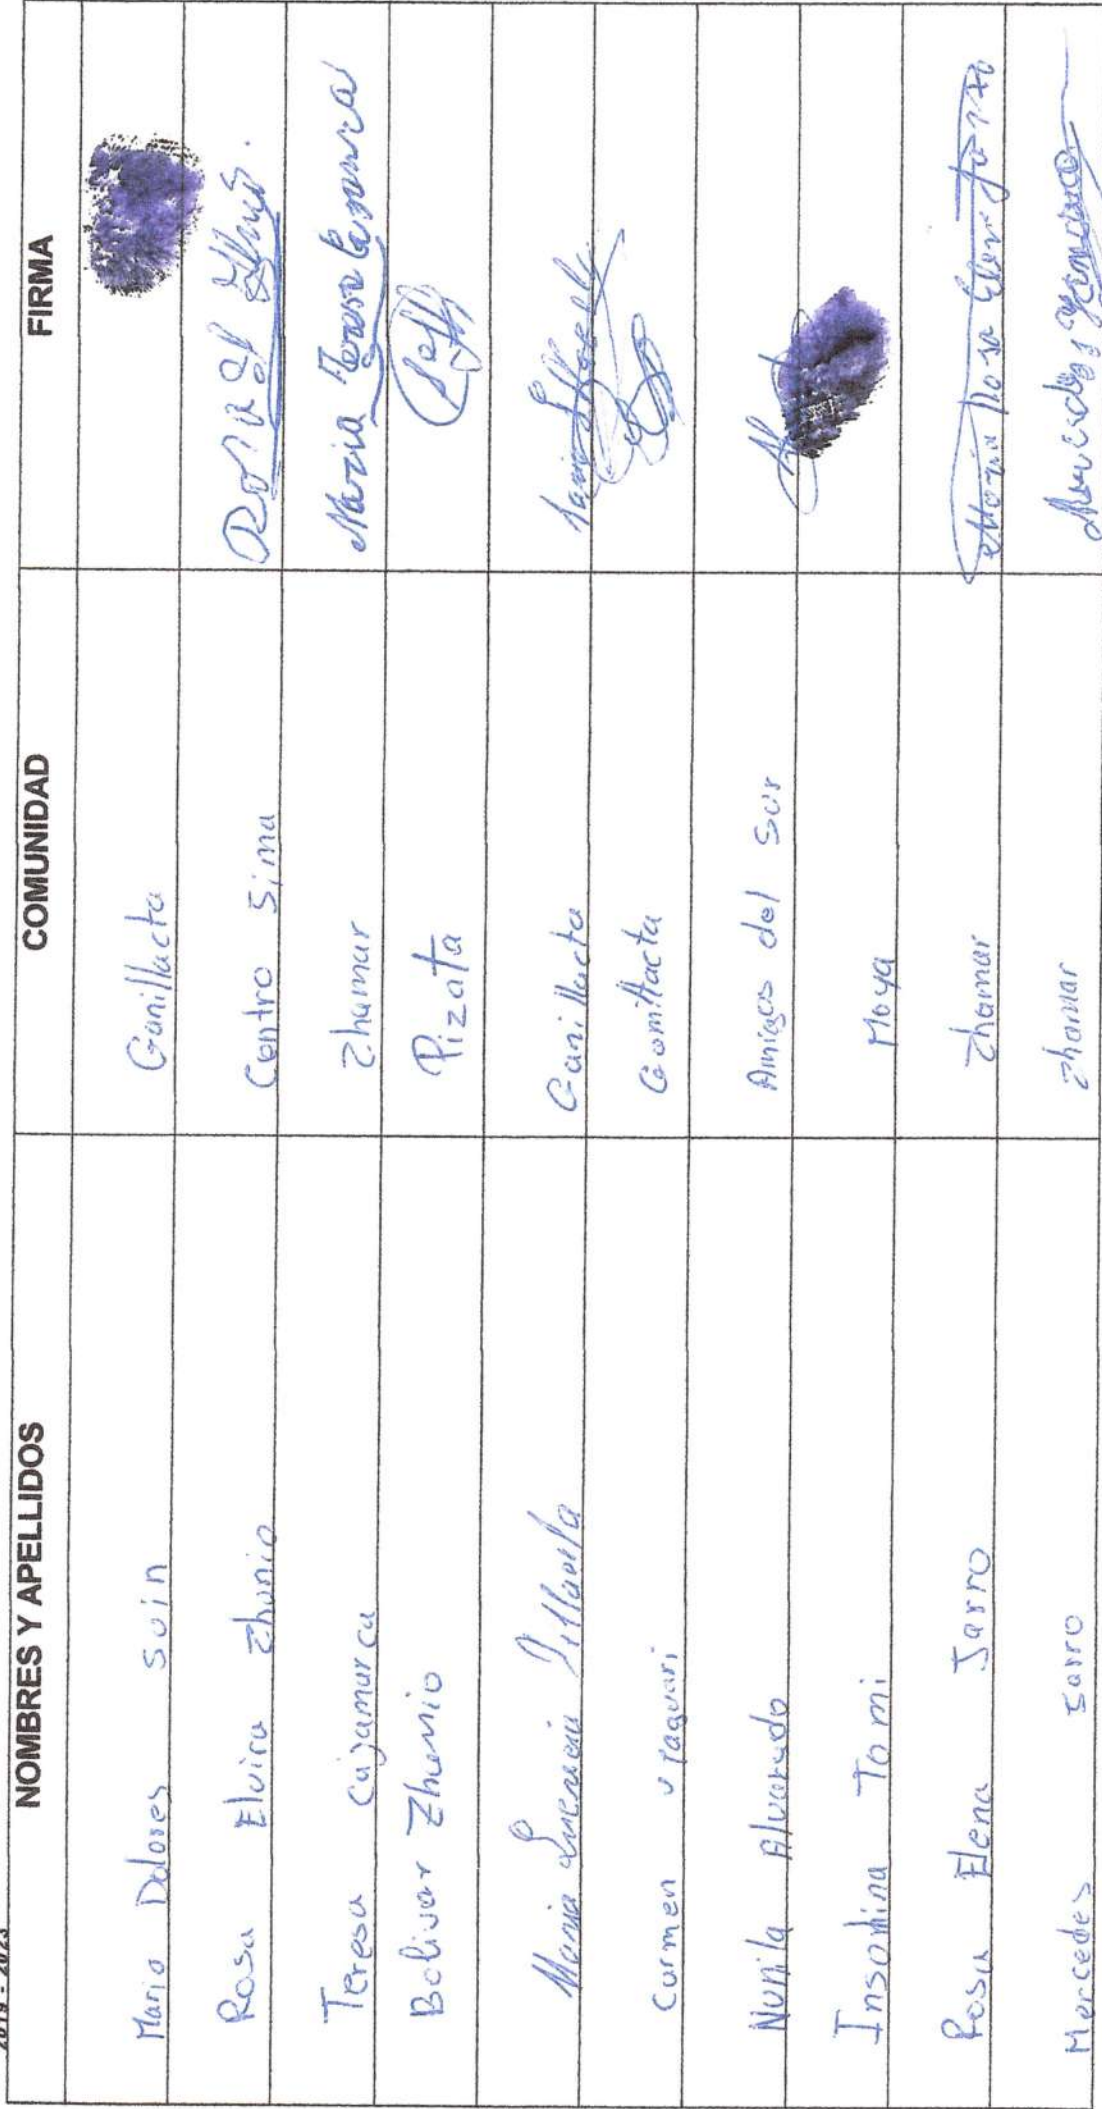 2019 - 2023
NOMBRES Y APELLIDOS COMUNIDAD FIRMA
Maria Dolores Suin Ganillacta
Rosa Elvira Zhunio Centro Sima
Teresa Cajamarca Zhamar Maria Teresa Cajamarca
Bolivar Zhunio Pizata
Maria Lucrecia Ganillacta
Carmen Ganillacta
Nunila Alvarado Amigos del Sur
Tomi Moya
Rosa Elena Jarro Zhamar Maria Rosa Elena Jarro
Mercedes Jarro Zhamar Mercedes